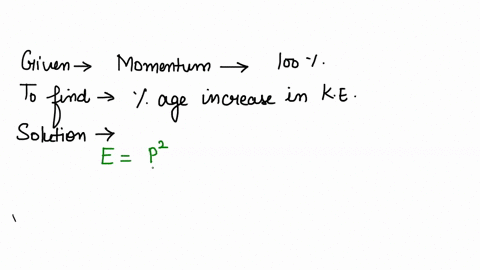 Given → Momentum → 100 %.
To find → % age increase in K.E.
Solution →
E = P²